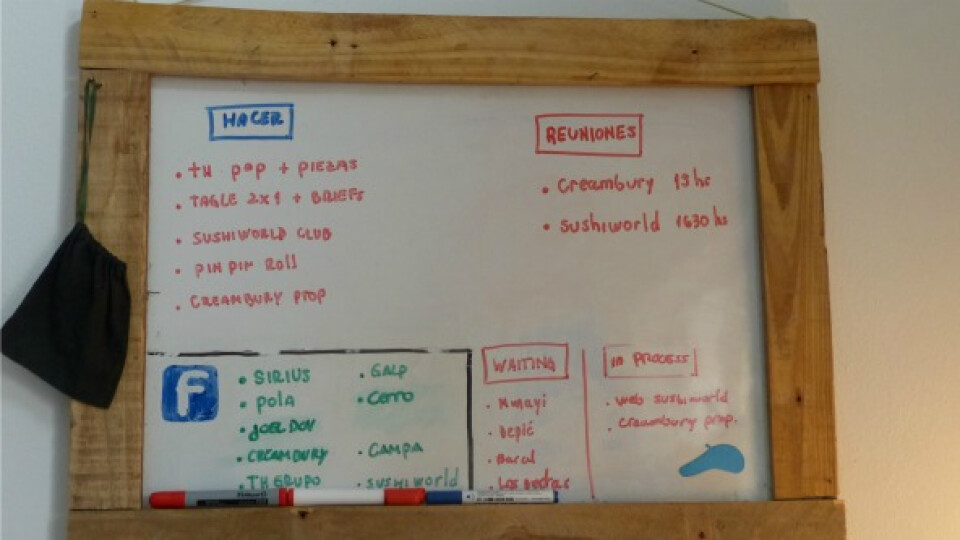 HACER
• TH POP + PIEZAS
• TAGLE 2x1 + BRIEFS
• SUSHIWORLD CLUB
• PIN PIN Roll
• CREAMBURY PROP
REUNIONES
• Creambury 15 hs
• Sushiworld 1630 hs
F
• SIRIUS
• POLA
• JOEL DOV
• CREAMBURY
• TH GRUPO
• GALP
• Cerro
• CAMPA
• SUSHIWorld
WAITING
• Depié
• Baral
IN PROCESS
• Web sushiworld
• Creambury prop.